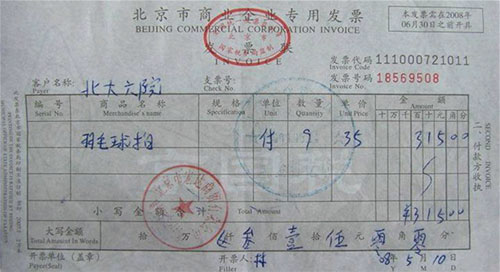 北京市商业企业专用发票
BEIJING COMMERCIAL CORPORATION INVOICE
本发票需在2008年
06月30日之前开具
发票
INVOICE
发票代码 111000721011
Invoice Code
发票号码 18569508
Invoice No
客户名称: 北大六院
Payer
支票号:
Check No.
编号 商品名称 规格 单位 数量 单价 金额
Serial No. Merchandise's name Specification Unit Quantity Unit Price Amount
十万千百十元角分
羽毛球拍 付 9 35 31500
小写金额合计 Total Amount ¥31500
大写金额 拾 万 仟 叁佰 壹拾 伍元 零角 零分
Total Amount In Words
开票单位(盖章) 开票人: 08年5月10日
Payee(Seal)
付款方收执